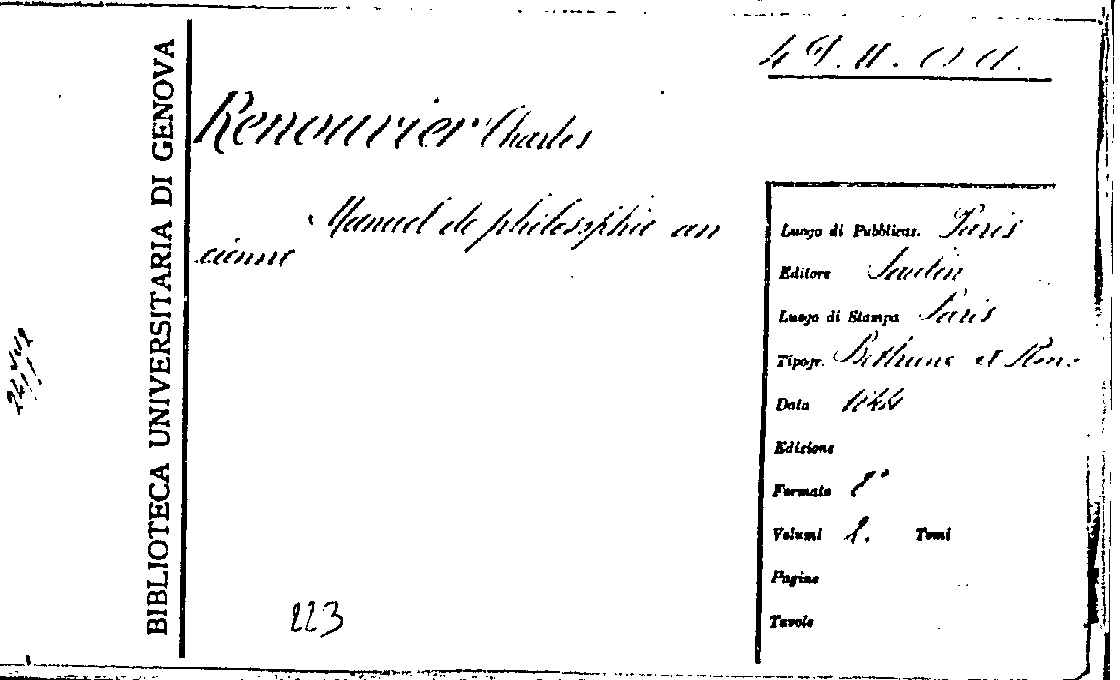 BIBLIOTECA UNIVERSITARIA DI GENOVA
Renouvier Charles
Manuel de philosophie an
cienne
Luogo di Pubblicaz. Paris
Editore Paulin
Luogo di Stampa Paris
Tipogr. Bethune et Plon.
Data 1844
Edizione
Formato 8°
Volumi Tomi
Pagine
Tavole
223